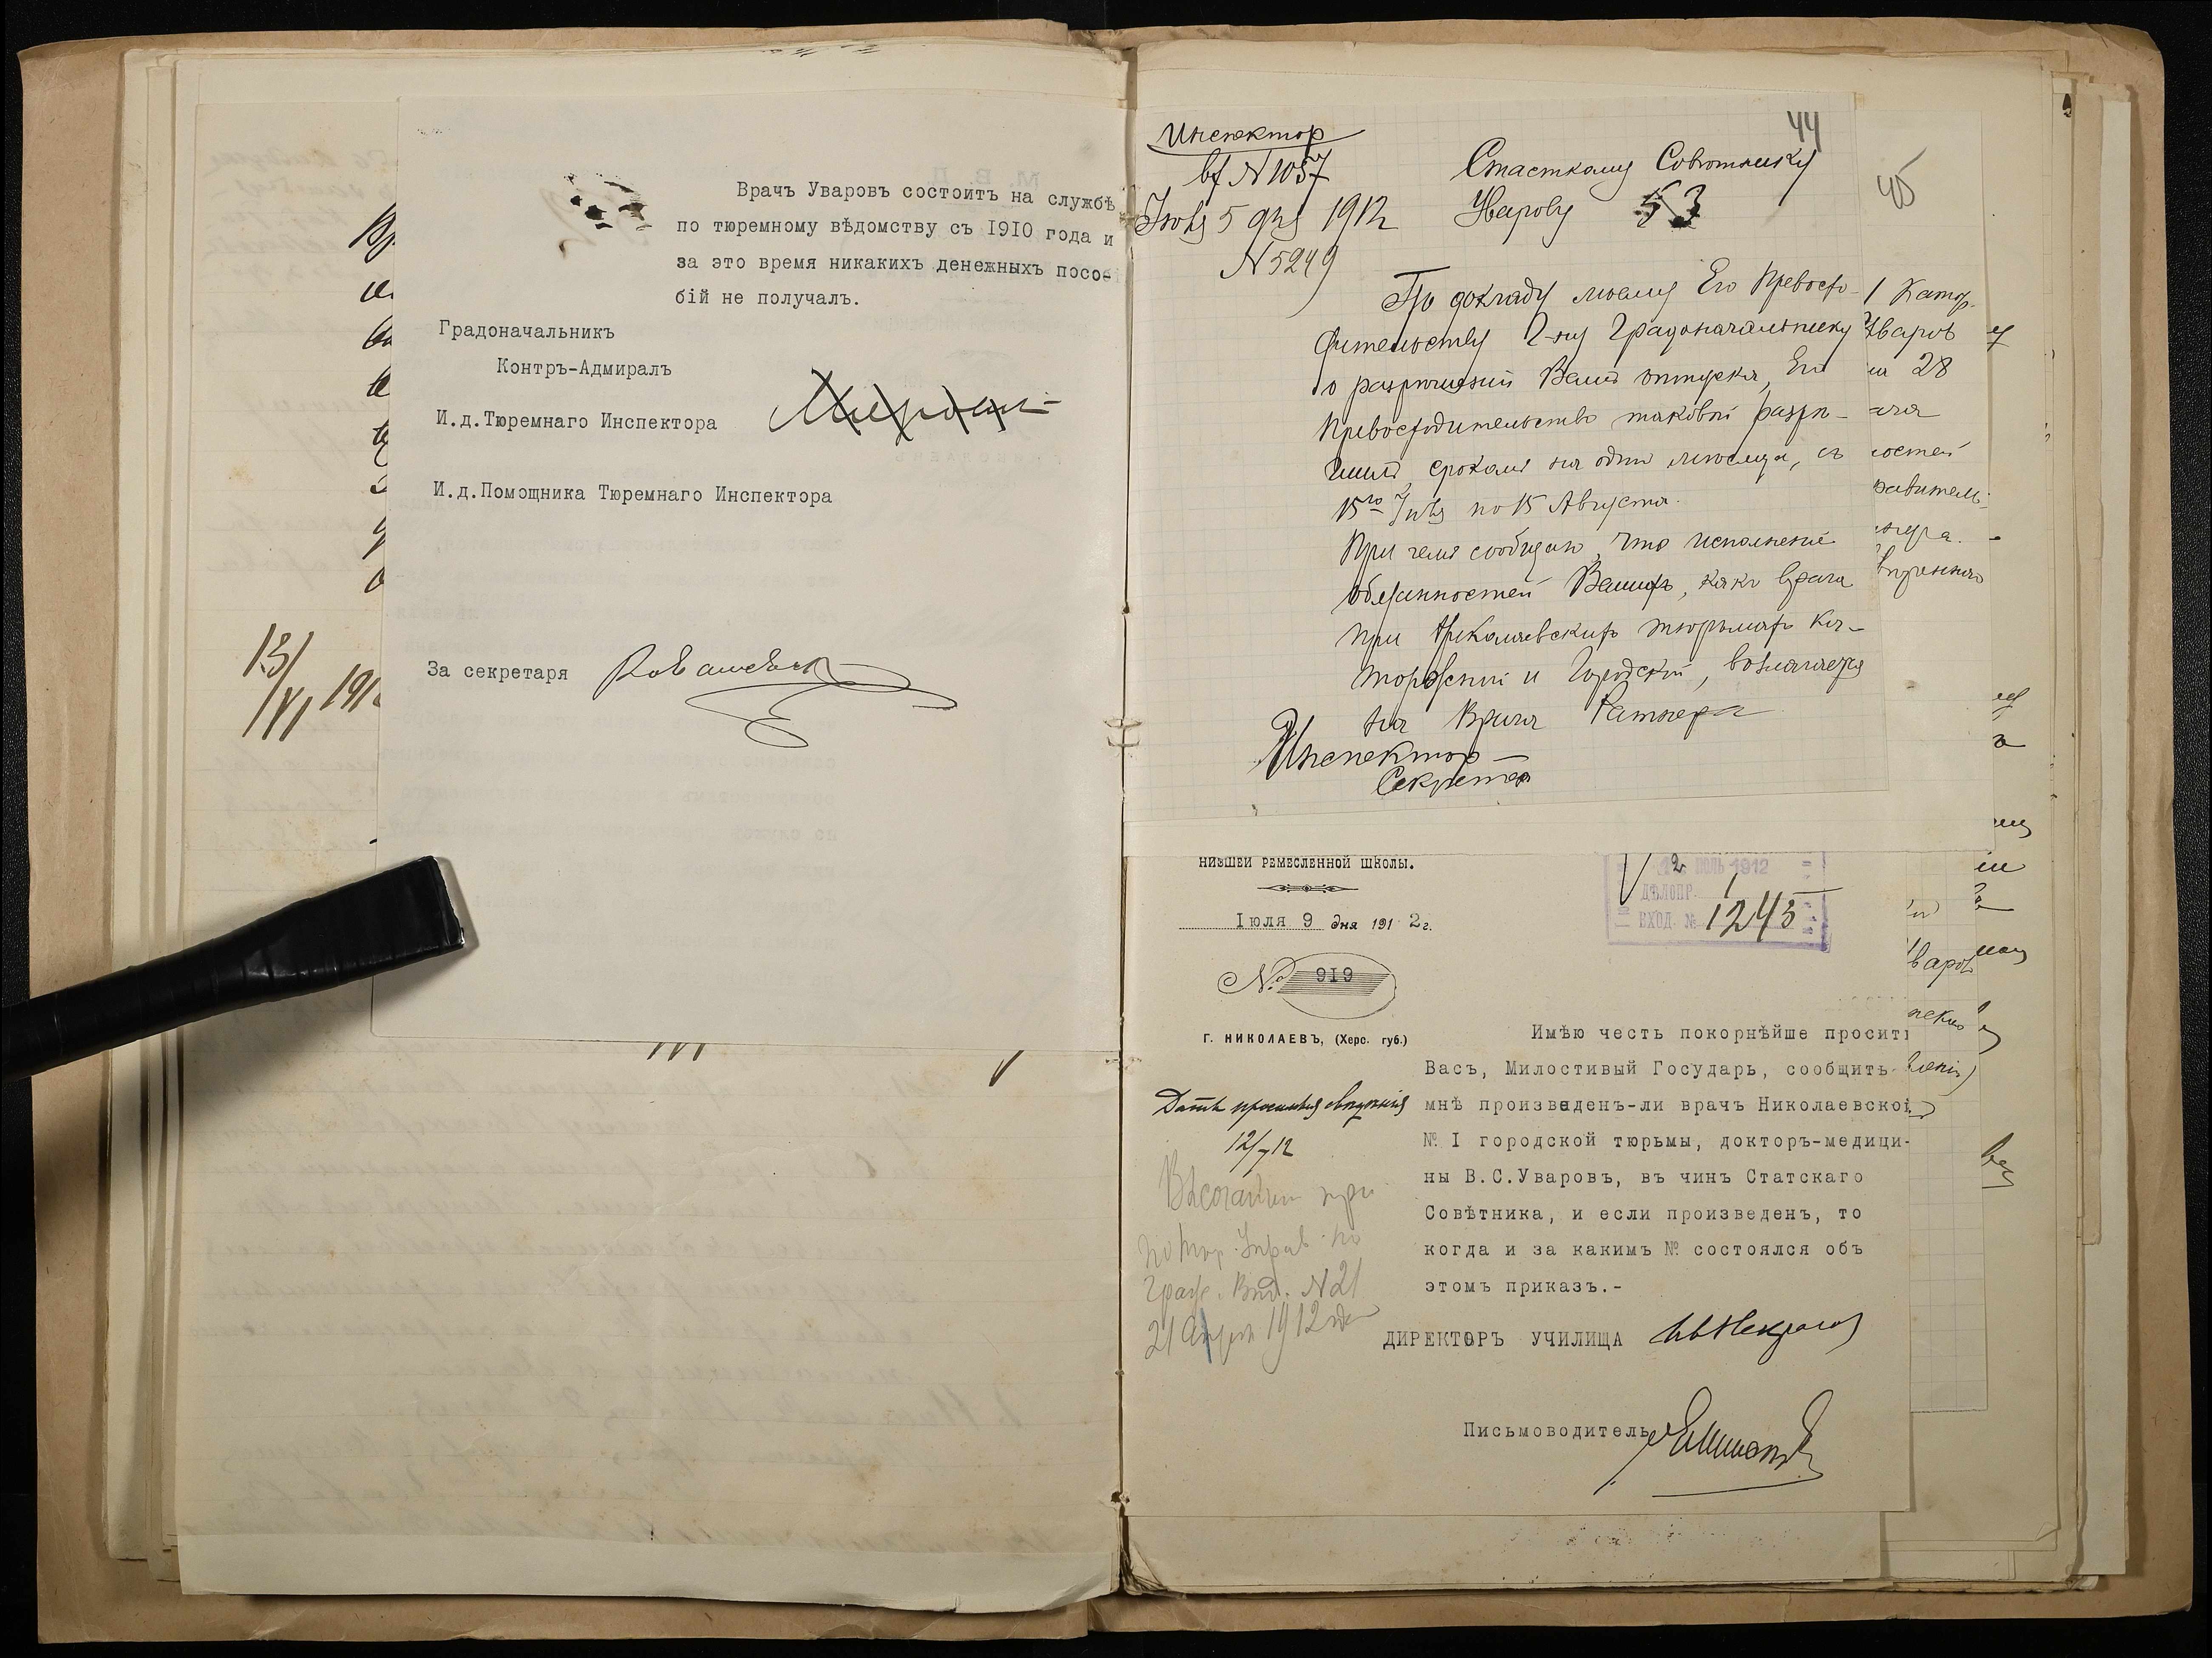 Врачъ Уваровъ состоитъ на службѣ
по тюремному вѣдомству съ 1910 года и
за это время никакихъ денежныхъ посо-
бій не получалъ.
Градоначальникъ
Контръ-Адмиралъ
И.д.Тюремнаго Инспектора
И.д.Помощника Тюремнаго Инспектора
За секретаря
13/VI 191
44
Инспекторъ
N 1057
Іюля 5 дня 1912
N 5249
Статскому Совѣтнику
Уварову 53
По докладу моему Его Превосхо-
дительству Г-ну Градоначальнику
о разрѣшеніи Вамъ отпуска, Его
Превосходительство таковой разрѣ-
шилъ, срокомъ на одинъ мѣсяцъ, съ
15го Іюля по 15 Августа.
При чемъ сообщаю, что исполненіе
обязанностей Вашихъ, какъ врача
при Николаевскихъ тюрьмахъ Ка-
торжной и Городской, возлагается
на Врача Ратнера
Инспекторъ
Секретарь
45
Катор-
Уваров
28
остей
НИЗШЕЙ РЕМЕСЛЕННОЙ ШКОЛЫ.
Іюля 9 дня 1912г.
№ 919
Г. НИКОЛАЕВЪ, (Херс. губ.)
2 ІЮЛЬ 1912
ДѢЛОПР. 1
ВХОД. № 1243
Имѣю честь покорнѣйше просить
Васъ, Милостивый Государь, сообщить
мнѣ произведенъ-ли врачъ Николаевской
№ I городской тюрьмы, докторъ-медици-
ны В.С.Уваровъ, въ чинъ Статскаго
Совѣтника, и если произведенъ, то
когда и за какимъ № состоялся объ
этомъ приказъ.-
Дать просимыя свѣдѣнія
12/7 12
Высочайшій при
по
Граж. Вѣд. N 21
21 Апрѣля 1912 года
ДИРЕКТОРЪ УЧИЛИЩА Ив Некрасов
Письмоводитель